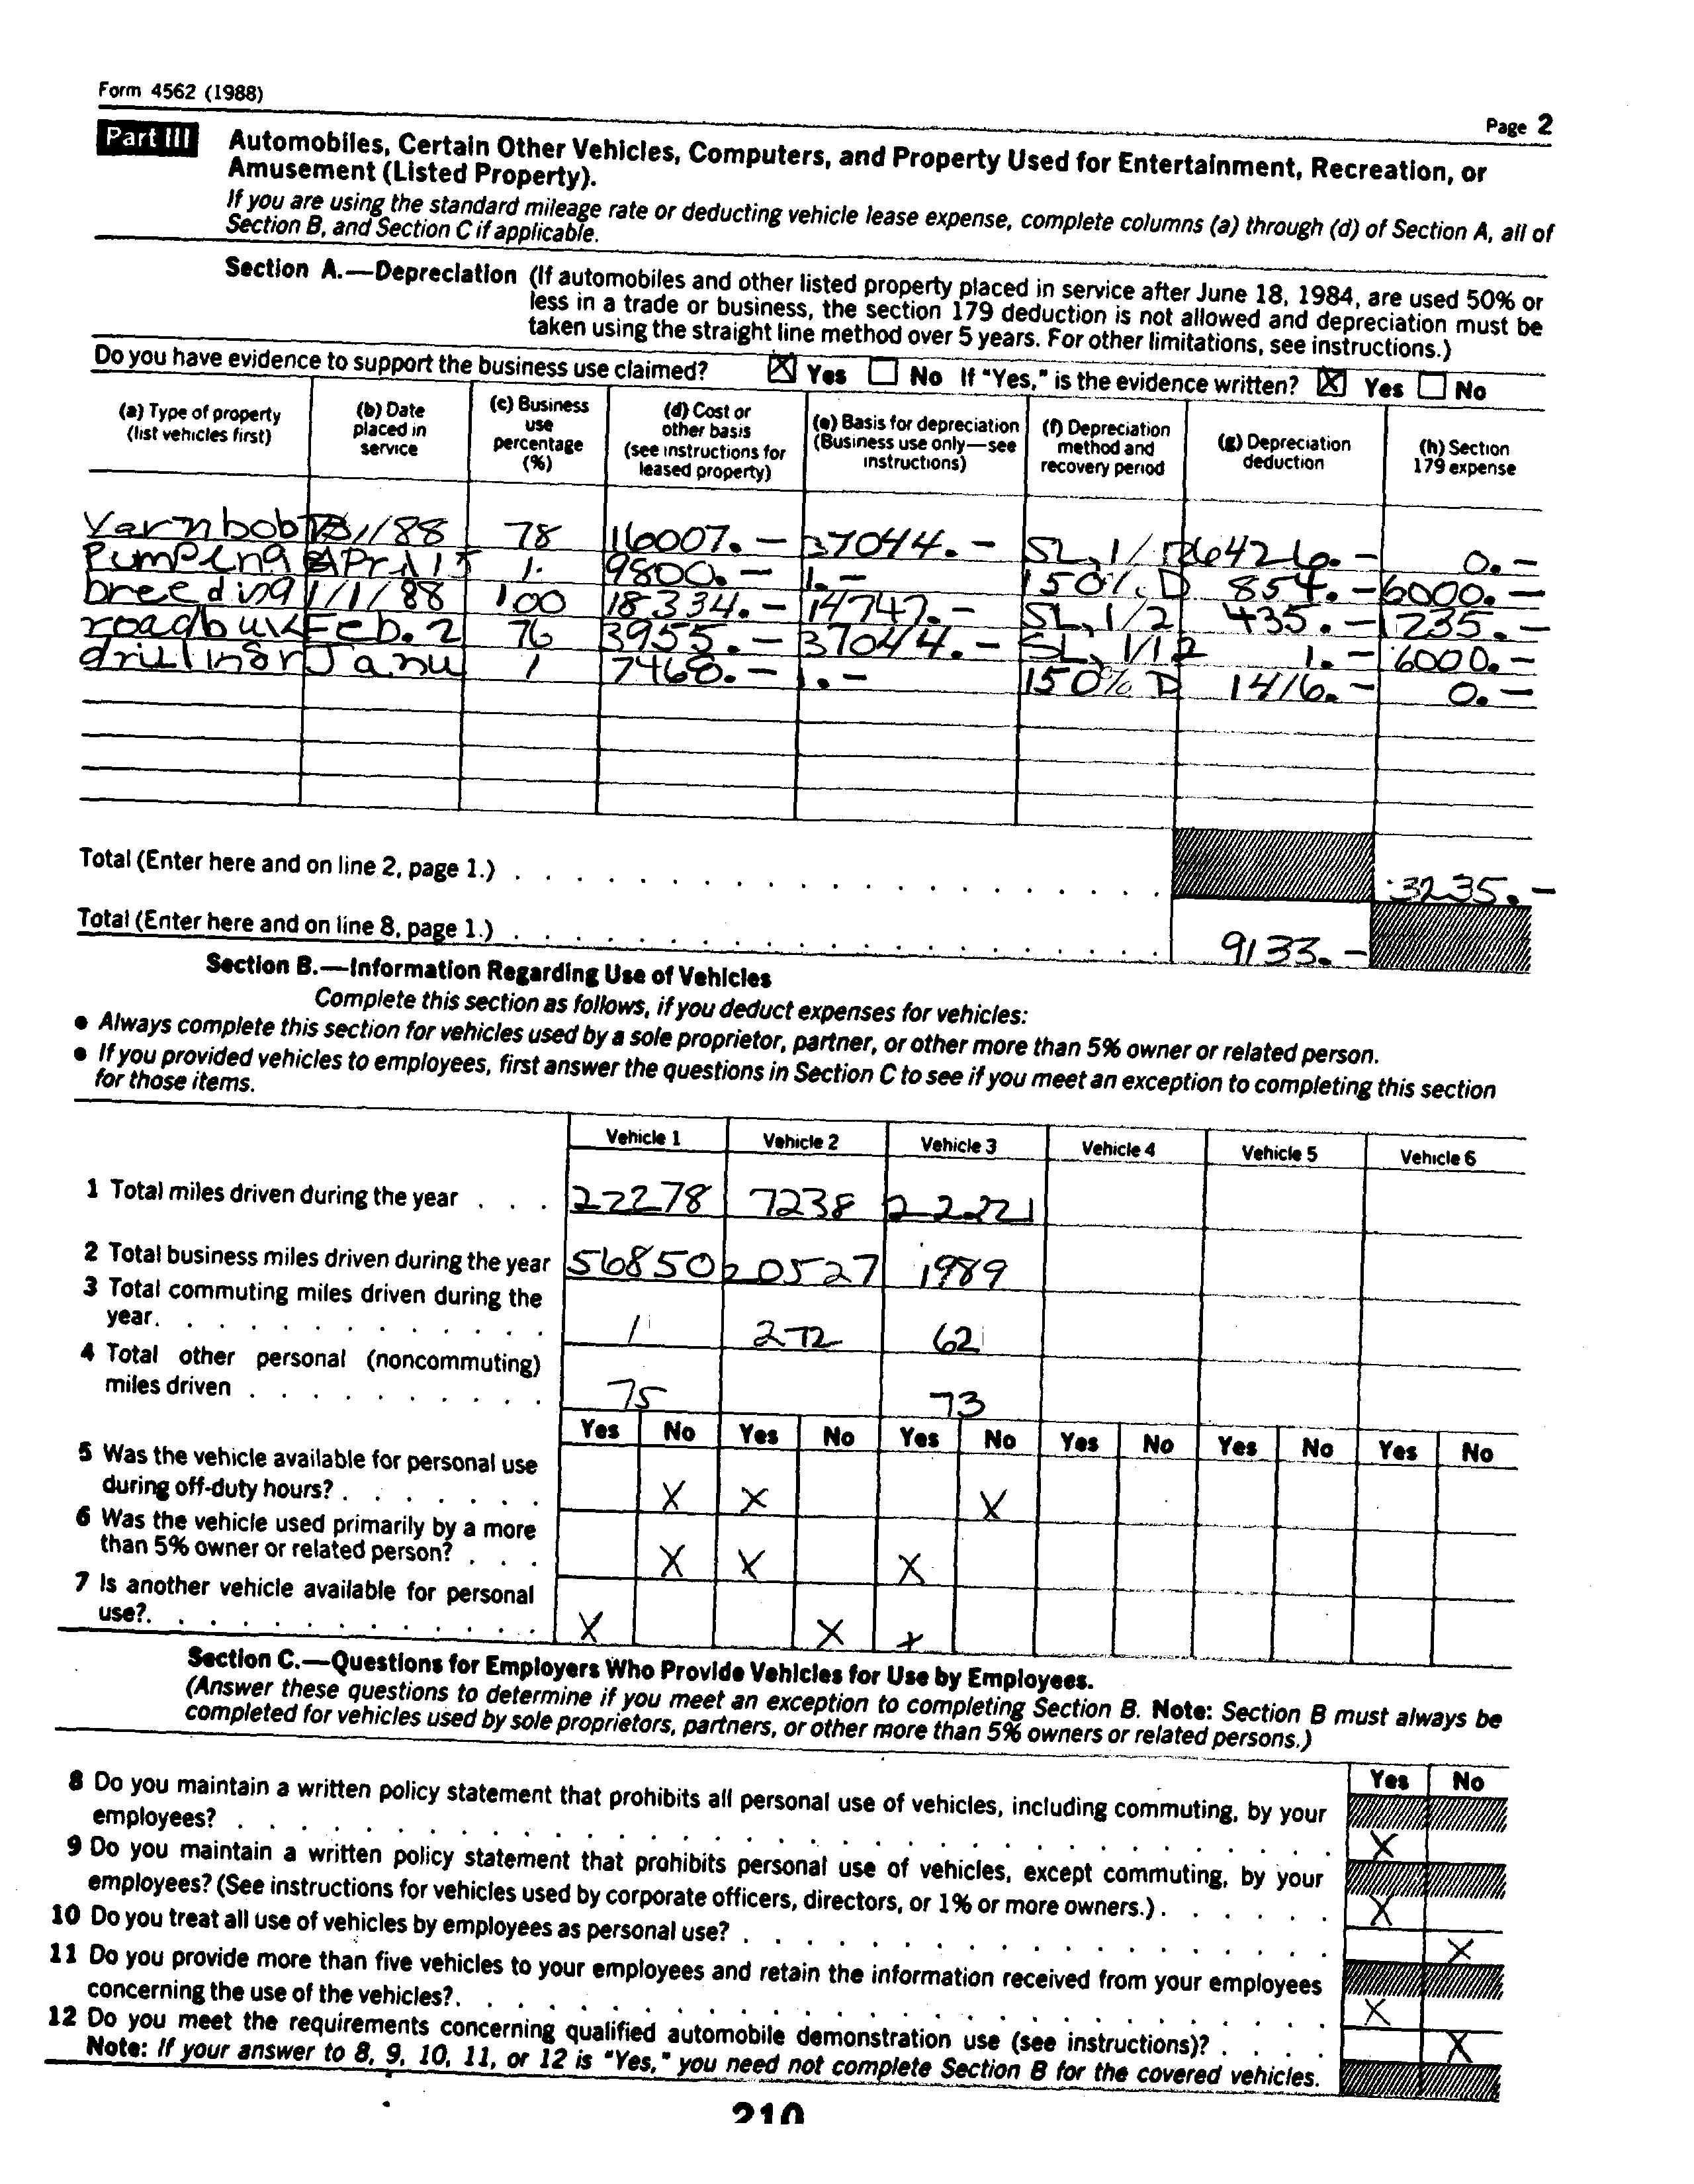 Form 4562 (1988)
Page 2
Part III Automobiles, Certain Other Vehicles, Computers, and Property Used for Entertainment, Recreation, or
Amusement (Listed Property).
If you are using the standard mileage rate or deducting vehicle lease expense, complete columns (a) through (d) of Section A, all of
Section B, and Section C if applicable.
Section A.—Depreciation (If automobiles and other listed property placed in service after June 18, 1984, are used 50% or
less in a trade or business, the section 179 deduction is not allowed and depreciation must be
taken using the straight line method over 5 years. For other limitations, see instructions.)
Do you have evidence to support the business use claimed? X Yes No If "Yes," is the evidence written? X Yes No
(a) Type of property (list vehicles first) (b) Date placed in service (c) Business use percentage (%) (d) Cost or other basis (see instructions for leased property) (e) Basis for depreciation (Business use only—see instructions) (f) Depreciation method and recovery period (g) Depreciation deduction (h) Section 179 expense
78 16007.- 37044.- SL, 1/ 6426.- 0.-
Pumping April 15 1. 9800.- 1.- 150% D 854.- 6000.-
breeding 1/1/88 100 18334.- 14747.- SL, 1/2 435.- 1235.-
Feb. 2 76 3955.- 37044.- SL, 1/12 1.- 6000.-
Janu 1 7468.- 1.- 150% D 1416.- 0.-
Total (Enter here and on line 2, page 1.) 3235.-
Total (Enter here and on line 8, page 1.) 9133.-
Section B.—Information Regarding Use of Vehicles
Complete this section as follows, if you deduct expenses for vehicles:
● Always complete this section for vehicles used by a sole proprietor, partner, or other more than 5% owner or related person.
● If you provided vehicles to employees, first answer the questions in Section C to see if you meet an exception to completing this section
for those items.
Vehicle 1 Vehicle 2 Vehicle 3 Vehicle 4 Vehicle 5 Vehicle 6
1 Total miles driven during the year 22278 7238 22221
2 Total business miles driven during the year 56850 20527 1989
3 Total commuting miles driven during the
year. 1 272 62
4 Total other personal (noncommuting)
miles driven 75 73
Yes No Yes No Yes No Yes No Yes No Yes No
5 Was the vehicle available for personal use
during off-duty hours? X X X
6 Was the vehicle used primarily by a more
than 5% owner or related person? X X X
7 Is another vehicle available for personal
use?. X X X
Section C.—Questions for Employers Who Provide Vehicles for Use by Employees.
(Answer these questions to determine if you meet an exception to completing Section B. Note: Section B must always be
completed for vehicles used by sole proprietors, partners, or other more than 5% owners or related persons.)
Yes No
8 Do you maintain a written policy statement that prohibits all personal use of vehicles, including commuting, by your
employees? X
9 Do you maintain a written policy statement that prohibits personal use of vehicles, except commuting, by your
employees? (See instructions for vehicles used by corporate officers, directors, or 1% or more owners.) X
10 Do you treat all use of vehicles by employees as personal use? X
11 Do you provide more than five vehicles to your employees and retain the information received from your employees
concerning the use of the vehicles?. X
12 Do you meet the requirements concerning qualified automobile demonstration use (see instructions)? X
Note: If your answer to 8, 9, 10, 11, or 12 is "Yes," you need not complete Section B for the covered vehicles.
210